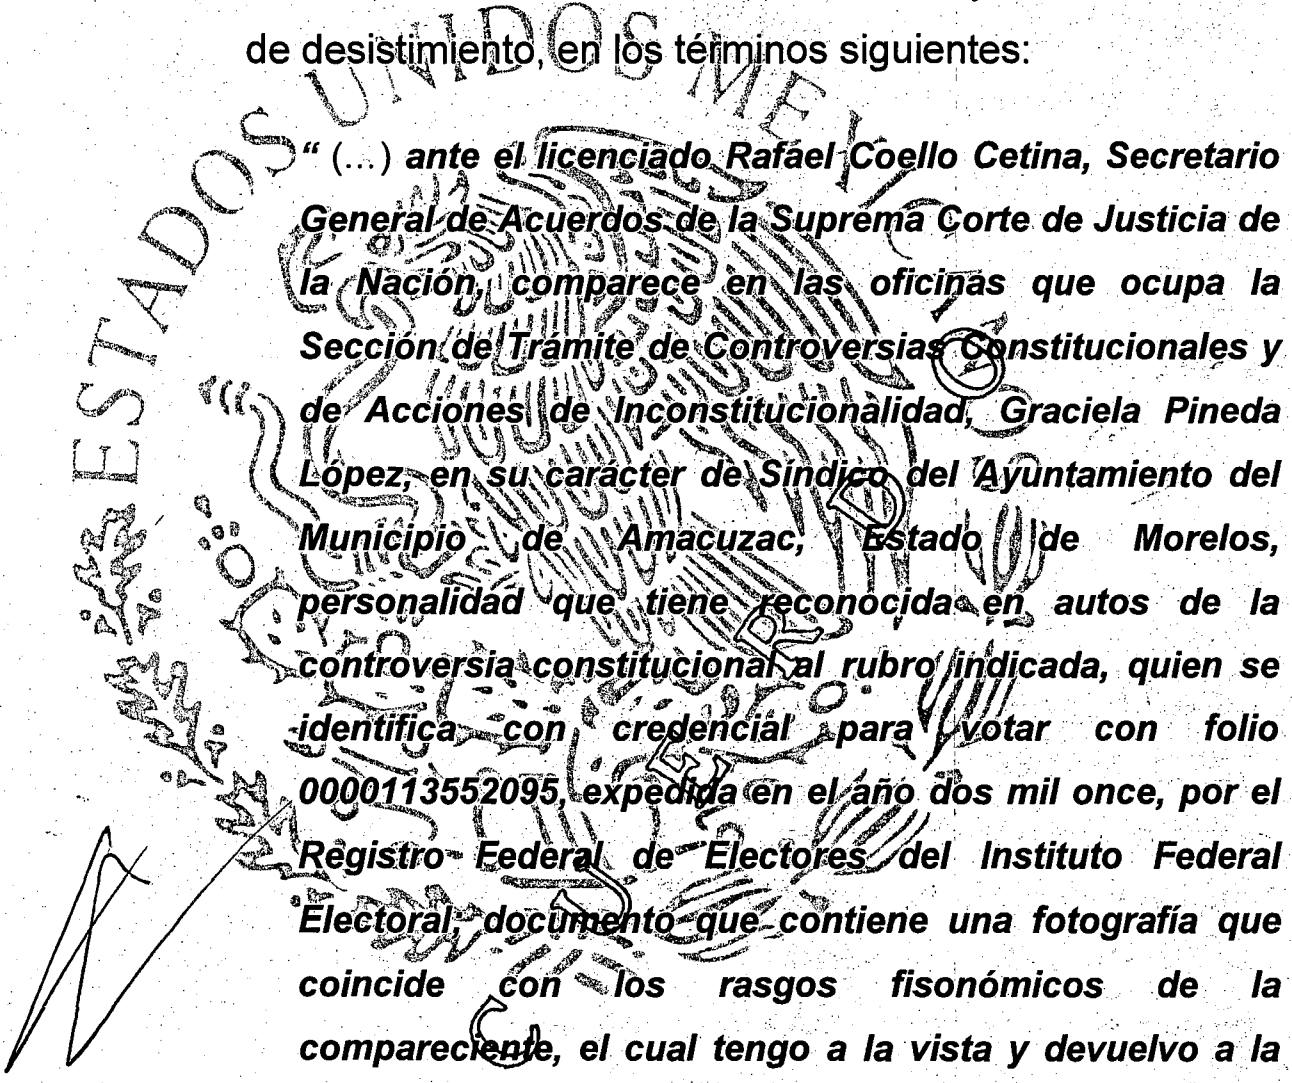 de desistimiento, en los términos siguientes:
“ (...) ante el licenciado Rafael Coello Cetina, Secretario
General de Acuerdos de la Suprema Corte de Justicia de
la Nación, comparece en las oficinas que ocupa la
Sección de Trámite de Controversias Constitucionales y
de Acciones de Inconstitucionalidad, Graciela Pineda
López, en su carácter de Síndico del Ayuntamiento del
Municipio de Amacuzac, Estado de Morelos,
personalidad que tiene reconocida en autos de la
controversia constitucional al rubro indicada, quien se
identifica con credencial para votar con folio
0000113552095, expedida en el año dos mil once, por el
Registro Federal de Electores del Instituto Federal
Electoral, documento que contiene una fotografía que
coincide con los rasgos fisonómicos de la
compareciente, el cual tengo a la vista y devuelvo a la
ESTADOS UNIDOS MEXICANOS